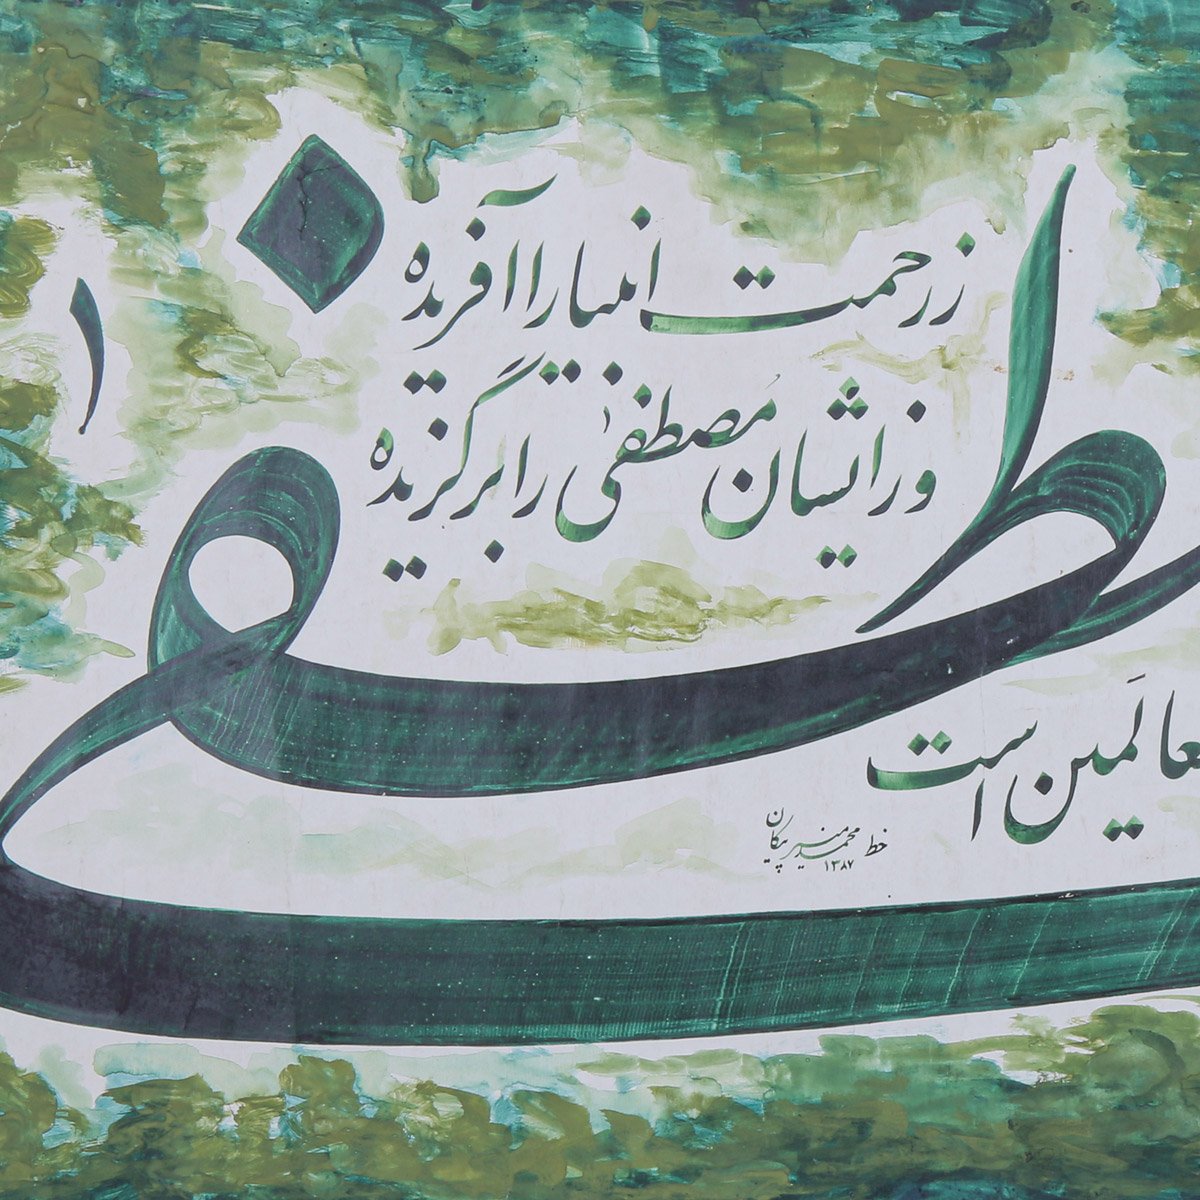 ز رحمت انبیا را آفریده
وز ایشان مُصطفیٰ را برگزیده
طفیٰ
عالَمین است
خط محمد منیر پیکان
۱۳۸۷